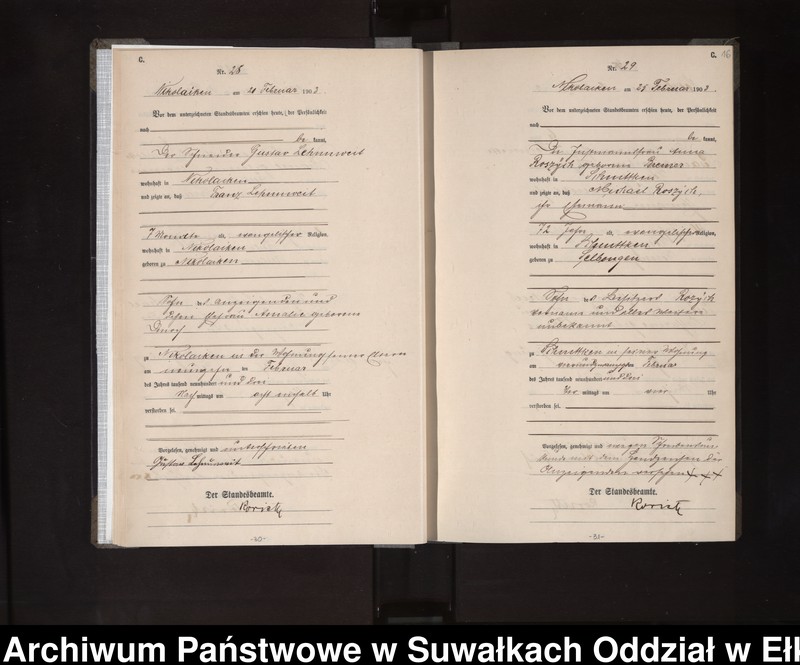 C.
Nr. 28
Nikolaiken am 21 Februar 1903.
Vor dem unterzeichneten Standesbeamten erschien heute, der Persönlichkeit
nach
be kannt,
Der Schneider Gustav Lehnnweit
wohnhaft in Nikolaiken
und zeigte an, daß Franz Lehnnweit
7 Monate a. evangelischer Religion,
wohnhaft in Nikolaiken
geboren zu Nikolaiken
Sohn des Anzeigenden und
Ehefrau Amalie geborene
zu Nikolaiken in der Wohnung seiner Eltern
am neunzehn ten Februar
des Jahres tausend neunhundert und drei
Nach mittags um acht einhalb Uhr
verstorben sei.
Vorgelesen, genehmigt und unterschrieben
Gustav Lehnnweit
Der Standesbeamte.
-30-
C. 16
Nr. 29
Nikolaiken am 25 Februar 1903
Vor dem unterzeichneten Standesbeamten erschien heute, der Persönlichkeit
nach
be kannt,
Die
geborene
wohnhaft in Schnittken
und zeigte an, daß Michael
ihr Ehemann
72 Jahr a. evangelischer Religion,
wohnhaft in Schnittken
geboren zu Selbongen
Sohn des Besitzers
unbekannt
zu Schnittken in seiner Wohnung
am vierundzwanzigsten Februar
des Jahres tausend neunhundert und drei
Vor mittags um vier Uhr
verstorben sei.
Vorgelesen, genehmigt und wegen Schreibensun-
kunde mit dem Handzeichen der
Anzeigenden versehen + + +
Der Standesbeamte.
-31-
Archiwum Państwowe w Suwałkach Oddział w Ełk